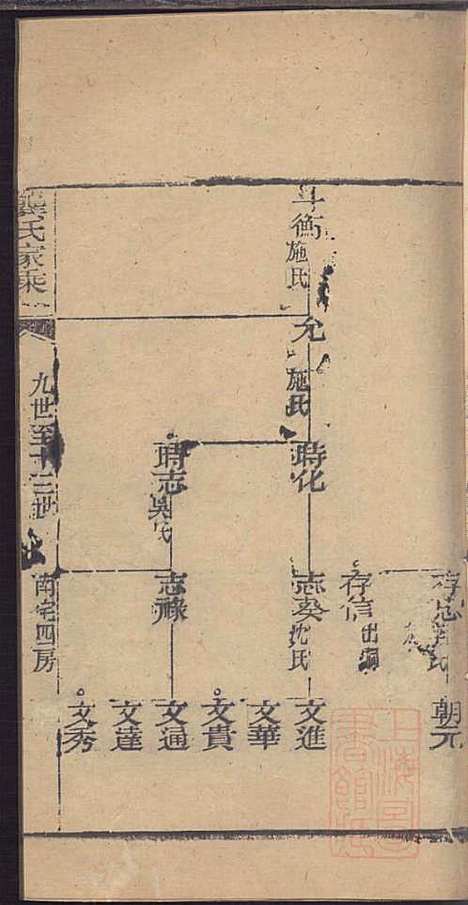 斗衡 施氏
允 施氏
時化
時志 吳氏
存忠
存信 出嗣
志葵 沈氏
志祿
朝元
文進
文華
文貴
文通
文達
文秀
龔氏家乘
九世至十三世
南宅四房
上海圖書館藏